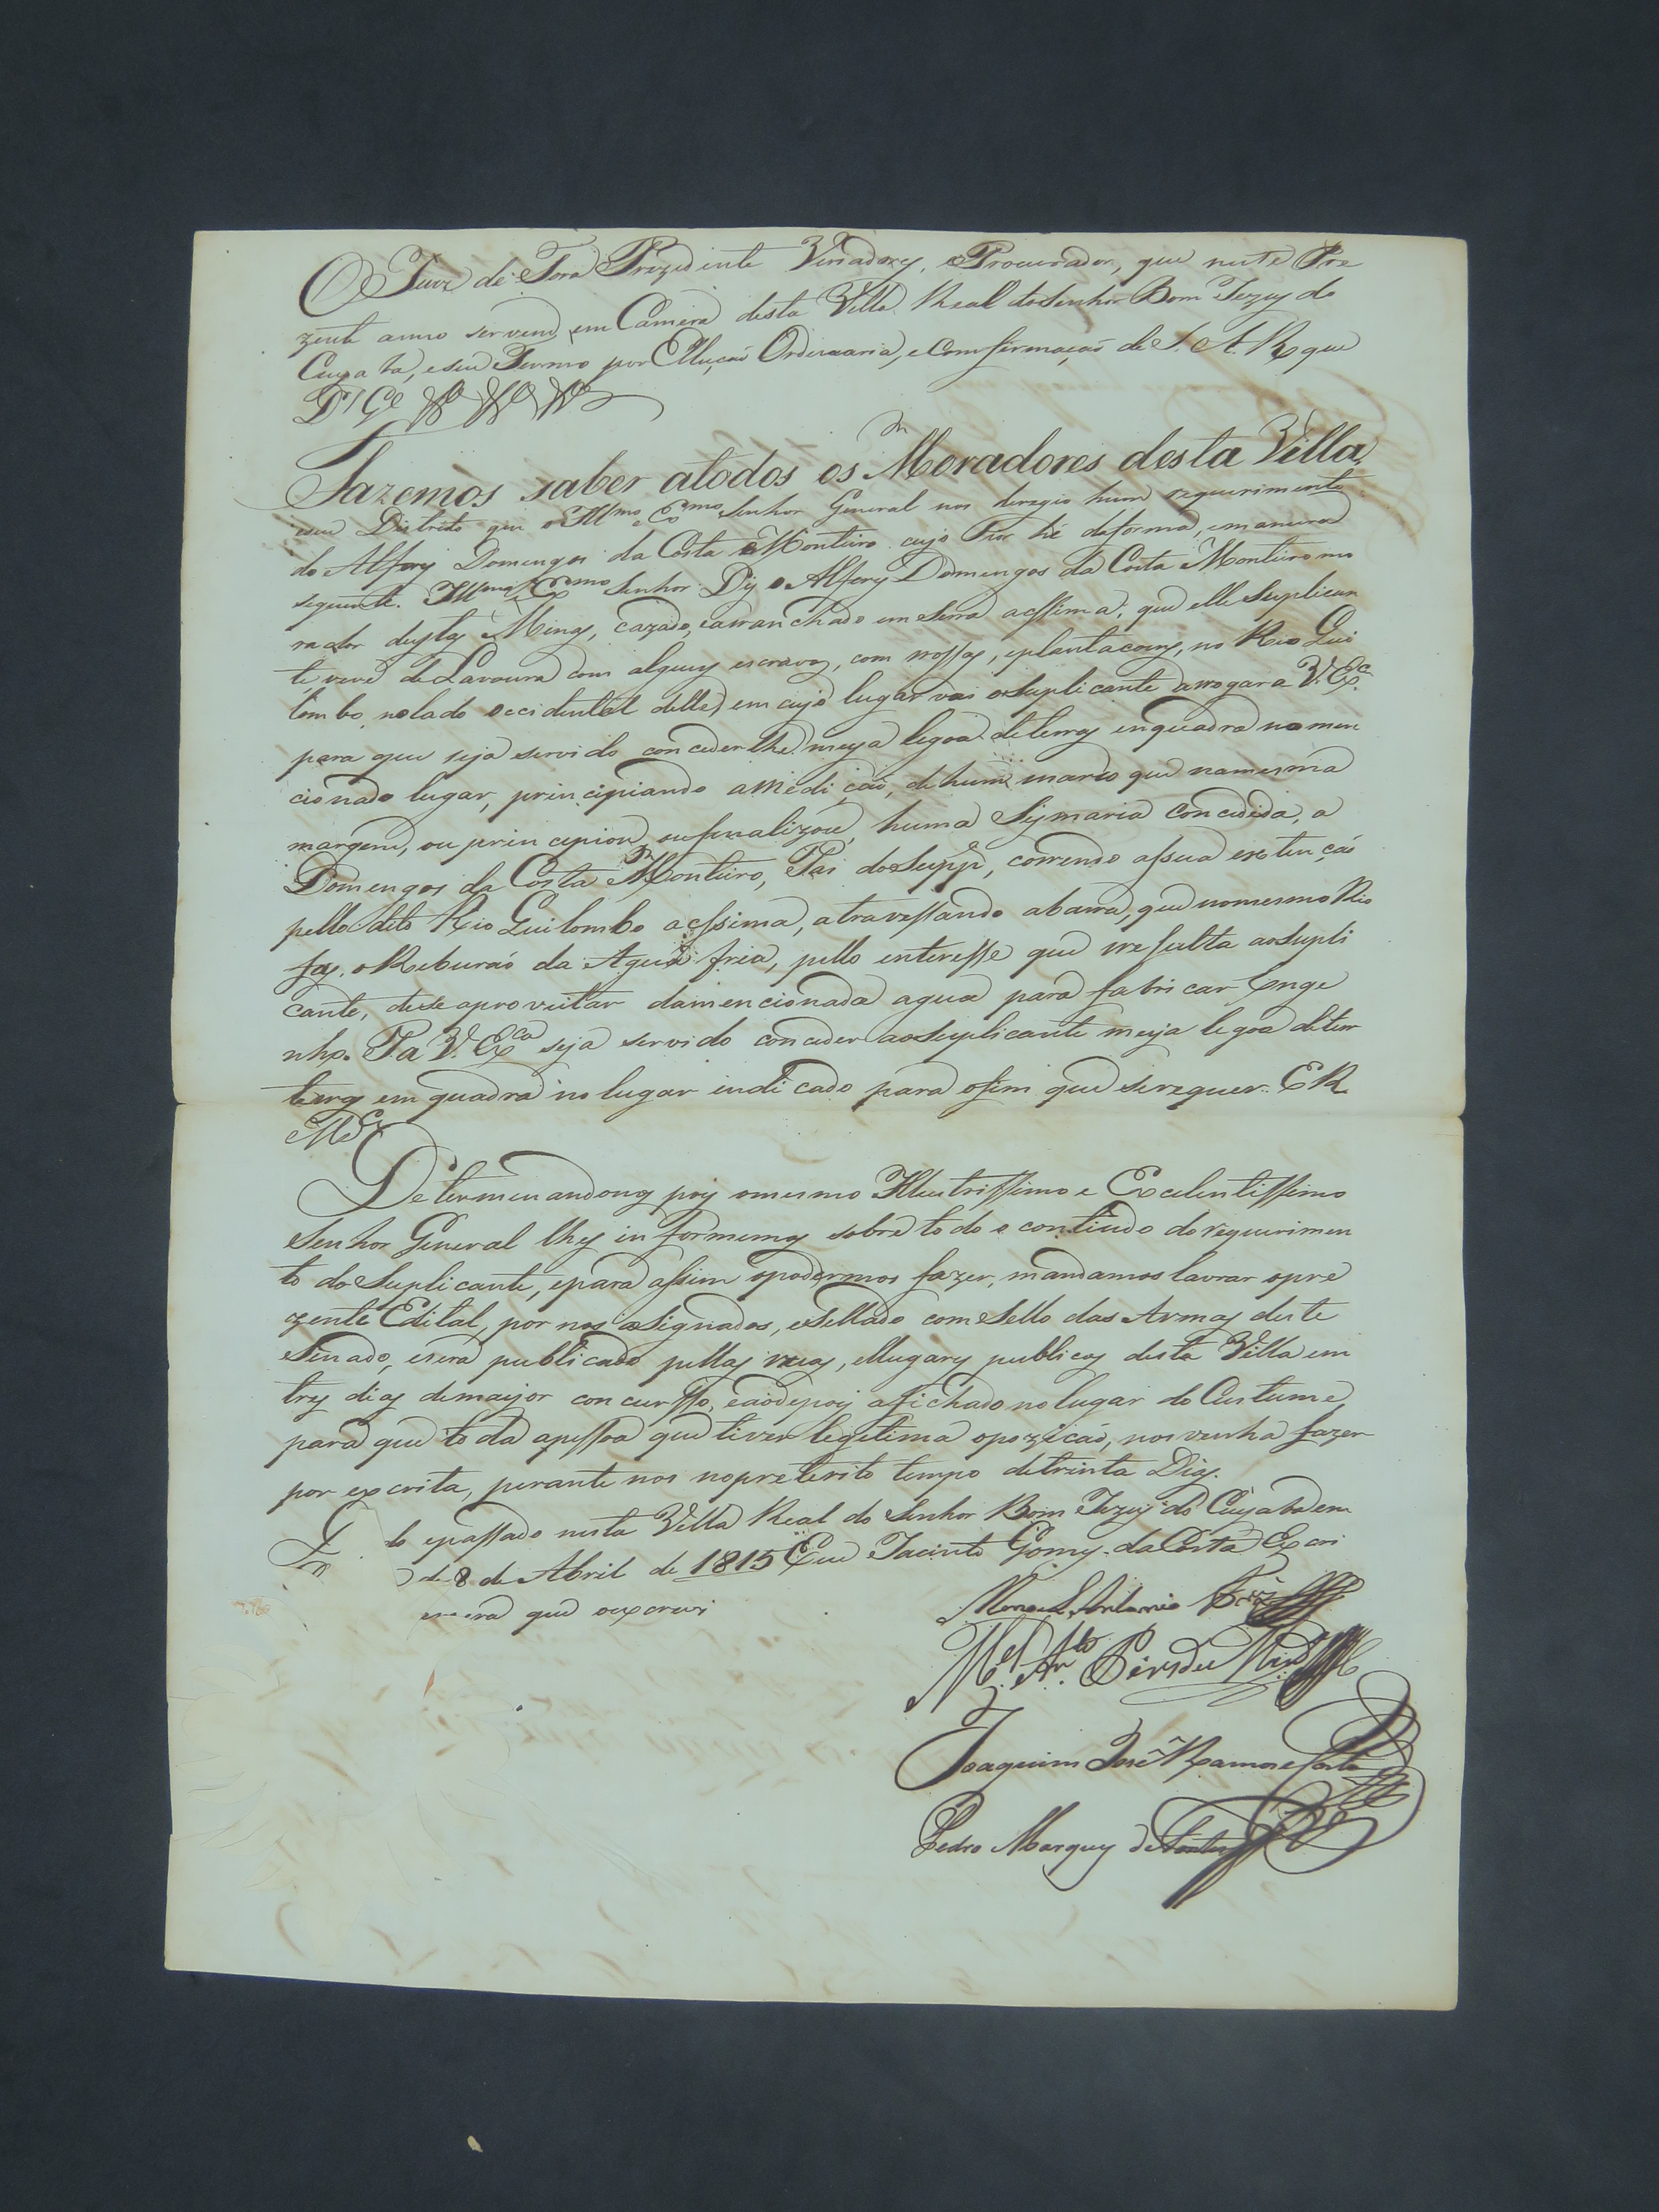 O Juiz de Fora Prezidente Veriadores, e Procurador, que neste Pre
zente anno servem em Camera desta Villa Real do Senhor Bom Jezus do
Cuyaba, e seu Termo por Elleiçaõ Ordenaria, e Comfirmaçaõ de S. A. R. que
Ds Ge
Fazemos saber atodos os Moradores desta Villa,
eseu Districto que o Illmo e Exmo Senhor General nos deregio hum requerimento
do Alferes Domingos da Costa Monteiro cujo Theor hé daforma, emaneira
seguinte. Illmo e Exmo Senhor. Diz o Alferes Domingos da Costa Monteiro mo
rador destas Minas, cazado, earranchado em Serra assima, que elle Suplican
te vive de Lavoura com alguns escravos, com rossas, eplantacoens, no Rio Qui
lombo, nolado occidental delle, em cujo lugar vai oSuplicante arrogar a V. Exca
para que seja servido concederlhe meya legoa deterras enquadra no men
cionado lugar, principiando amediçaõ, dehum marco que namesma
margem, ou principiou, oufinalizou, huma Sismaria Concedida, a
Domingos da Costa Monteiro, Pai doSuppe, correndo assua extençaõ
pello dito Rio Quilombo assima, atravessando abarra, que nomesmo Rio
faz, oRibeiraõ da Agua fria, pello interesse que rresulta aoSupli
cante, dese aproveitar damencionada agua para fabricar Enge
nho. Pa V. Exca seja servido conceder aoSuplicante meya legoa deter
terras em quadra no lugar indicado para ofim que serequer. E R.
Mce
Determinandonos pois omesmo Illustrissimo e Excelentissimo
Senhor General lhes informemos sobre todo o contiudo do requerimen
to do Suplicante, epara assim opodermos fazer, mandamos lavrar opre
zente Edital, por nos asignados, eSellado com oSello das Armas deste
Senado, eserá publicado pellas ruas, elugares publicos desta Villa em
tres dias demaijor concursso, eaodepois afichado no lugar do Custume,
para que toda apessoa que tiver legitima opoziçaõ, nos venha fazer
por excrita, perante nos nopreterito tempo detrinta Dias.
do epassado nesta Villa Real do Senhor Bom Jezus do Cuyaba em
de 8 de Abril de 1815 Eu Jacinto Gomes da Costa Excri
que oexcrevi
Manoel Antonio
Mel Anto Pires de
Joaquim José Ramos e Costa
Pedro Marques de Fontes